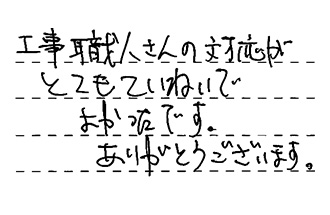 工事職人さんの対応が
とてもていねいで
よかったです。
ありがとうございます。